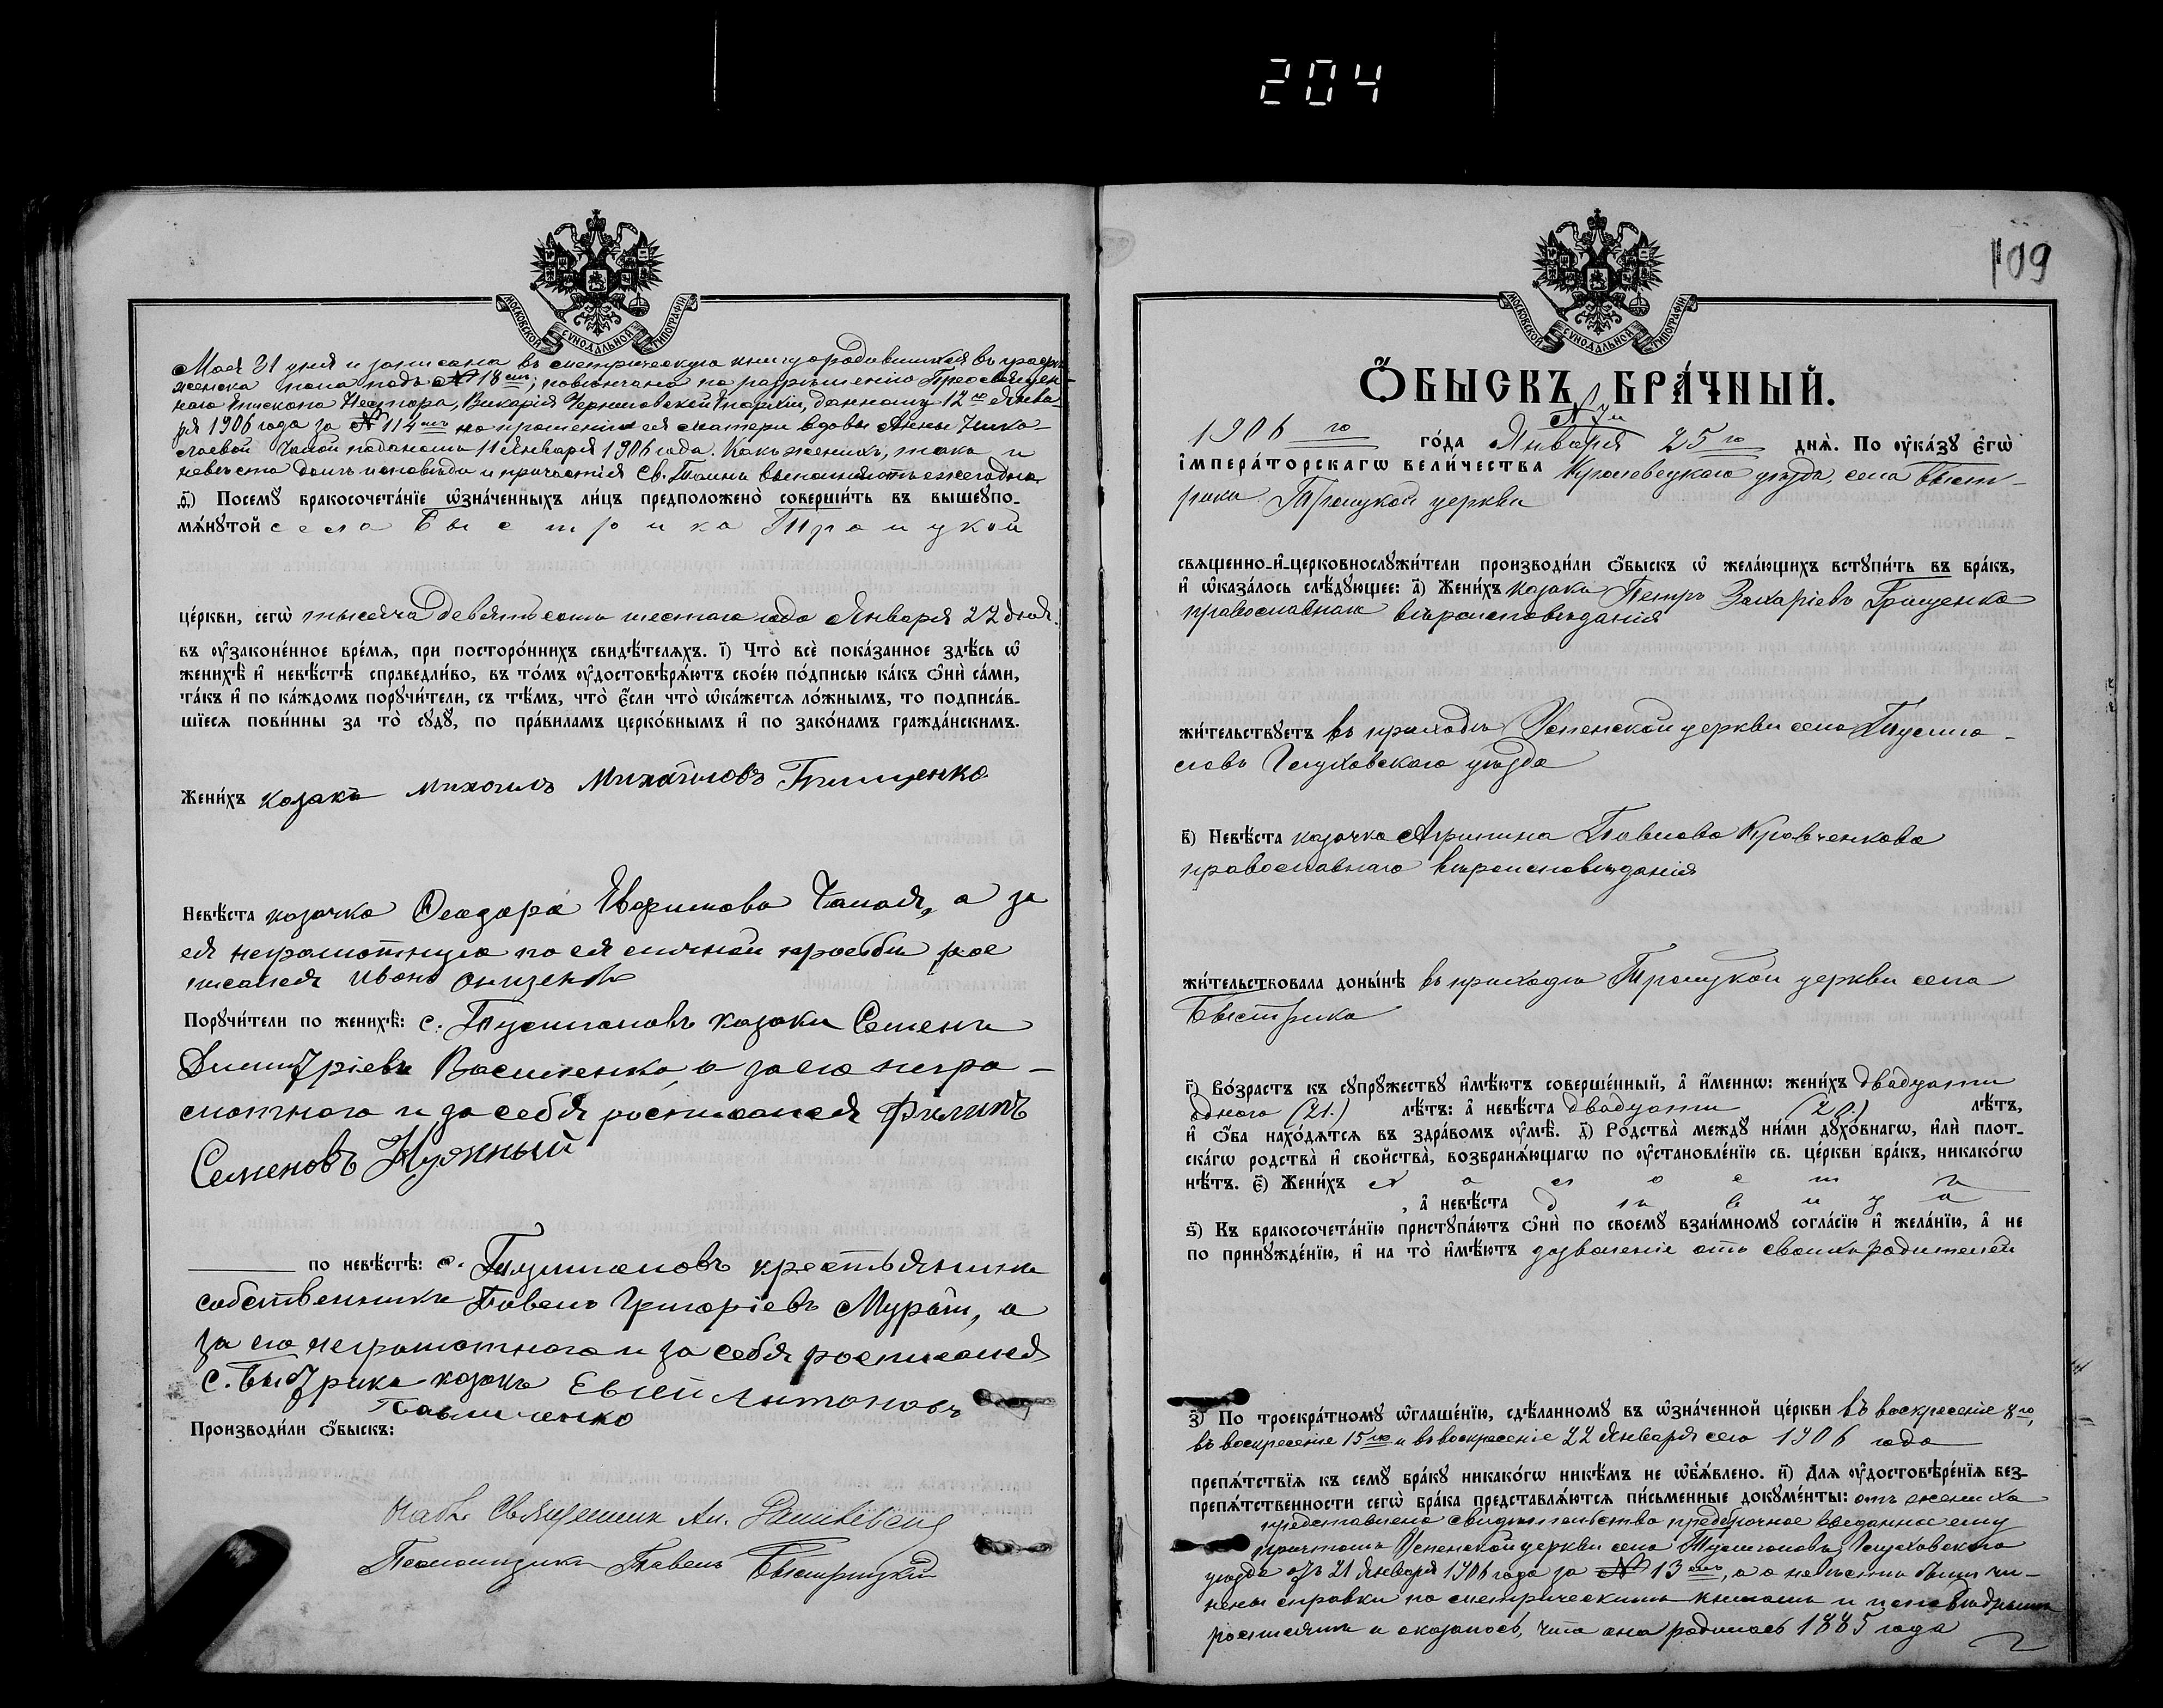 204
109
МОСКОВСКОЙ СѴНОДАЛЬНОЙ ТИПОГРАФІИ
Мая 31 дня и записана въ метрическую книгу о родившихся въ графѣ
женска пола подъ № 18мъ; повѣнчана по разрѣшенію Преосвящен-
наго Епископа Нестора, Викарія Черниговской Епархіи, данному 12го Янва-
ря 1906 года за № 114мъ на прошеніи ея матери вдовы Анны
поданомъ 11 Января 1906 года. Какъ женихъ, такъ и
невѣста долгъ исповѣди и причастія Св. Таинъ выполняютъ ежегодно.
ѳ҃) Посемꙋ̀ бракосочета́нїе ѡ҆зна́ченныхъ ли́цъ предположено̀ соверши́ть въ вышеꙋпо-
мѧ́нꙋтой села Быстрика Троицкой
це́ркви, сегѡ̀ тысяча девятьсотъ шестого года Января 22 дня.
въ ѹ҆зако́ненное вре́мѧ, при посторо́ннихъ свидѣ́телѧхъ. і҃) Что̀ всѐ пока́занное здѣ́сь ѡ҆
женихѣ̀ и҆ невѣ́стѣ справедли́во, въ то́мъ ѹ҆достовѣрѧ́ютъ свое́ю по́дписью ка́къ ѻ҆нѝ са́ми,
та́къ и҆ по ка́ждомъ порꙋчи́тели, съ тѣ́мъ, что̀ е҆́сли что̀ ѡ҆ка́жетсѧ ло́жнымъ, то подписа́в-
шїесѧ пови́нны за то̀ сꙋдꙋ̀, по пра́виламъ церко́внымъ и҆ по зако́намъ гражда́нскимъ.
Жени́хъ козакъ Михаилъ Михайловъ Грищенко
Невѣ́ста козачка Ѳеодора Евфимова а за
ея неграмотную по ея личной просьбѣ рос
писался Иванъ
Порꙋчи́тели по женихѣ̀: с. Тулиголовъ козаки Семенъ
Димитріевъ Василенко, а за его негра-
мотнаго и за себя росписался Филипъ
Семеновъ
по невѣ́стѣ: с. Тулиголовъ крестьянинъ
собственникъ Павелъ Григоріевъ Мурай, а
за его неграмотнаго и за себя росписался
с. Быстрика козакъ Евсей Антоновъ
Павличенко
Производи́ли ѻ҆́быскъ:
Священникъ Ан.
Псаломщикъ Павелъ Быстрицкій
МОСКОВСКОЙ СѴНОДАЛЬНОЙ ТИПОГРАФІИ
Ѻ҆́БЫСКЪ БРА́ЧНЫЙ.
№ 7й
1906 го го́да Января 25го днѧ̀. По ѹ҆ка́зꙋ Е҆гѡ̀
і҆мпера́торскагѡ вели́чества Кролевецкаго уѣзда, села Быст-
рика Троицкой церкви
свѧщенно-и҆-церковнослꙋжи́тели производи́ли ѻ҆́быскъ ѡ҆ жела́ющихъ встꙋпи́ть въ бра́къ,
и҆ ѡ҆каза́лось слѣ́дꙋющее: а҃) Жени́хъ козакъ Петръ Захаріевъ Грищенко
православнаго вѣроисповѣданія
жи́тельствꙋетъ въ приходѣ Успенской церкви села Тулиго-
ловъ Глуховскаго уѣзда
в҃) Невѣ́ста козачка Агрипина Павлова Кравченкова
православнаго вѣроисповѣданія
жи́тельствовала доны́нѣ въ приходѣ Троицкой церкви села
Быстрика
г҃) Во́зрастъ къ сꙋпрꙋ́жествꙋ и҆мѣ́ютъ соверше́нный, а҆ и҆́меннѡ: жени́хъ двадцати
одного (21.) лѣ́тъ: а҆ невѣ́ста двадцати (20.) лѣ́тъ,
и҆ ѻ҆́ба нахо́дѧтсѧ въ здра́вомъ ѹ҆мѣ̀. д҃) Ро́дства̀ междꙋ̀ ни́ми дꙋхо́внагѡ, и҆лѝ плот-
ска́гѡ родства̀ и҆ сво́йства̀, возбранѧ́ющагѡ по ѹ҆становле́нїю св. це́ркви бра́къ, никако́гѡ
нѣ́тъ. е҃) Жени́хъ холостъ
, а҆ невѣ́ста дѣвица
ѕ҃) Къ бракосочета́нїю пристꙋпа́ютъ ѻ҆нѝ по своемꙋ̀ взаи́мномꙋ согла́сїю и҆ жела́нїю, а҆ не
по принꙋжде́нїю, и҆ на то̀ и҆мѣ́ютъ дозволеніе отъ своихъ родителей
з҃) По троекра́тномꙋ ѡ҆глаше́нїю, сдѣ́ланномꙋ въ ѡ҆зна́ченной це́ркви въ воскресеніе 8го,
въ воскресеніе 15го и въ воскресеніе 22 Января сего 1906 года
препѧ́тствїѧ къ семꙋ̀ бра́кꙋ никако́гѡ никѣ́мъ не ѡ҆б̾ѧ́влено. и҃) Длѧ ѹ҆достовѣре́нїѧ без-
препѧ́тственности сегѡ̀ бра́ка представлѧ́ютсѧ пи́сьменные докꙋме́нты: отъ жениха
представлено свидѣтельство предбрачное выданное ему
причтомъ Успенской церкви села Тулиголовъ Глуховскаго
уѣзда отъ 21 Января 1906 года за № 13мъ, а о невѣстѣ были чи-
нены справки по метрическимъ книгамъ и исповѣднымъ
росписямъ и оказалось, что она родилась 1885 года